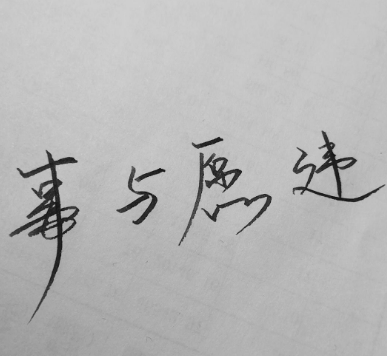 事与愿违